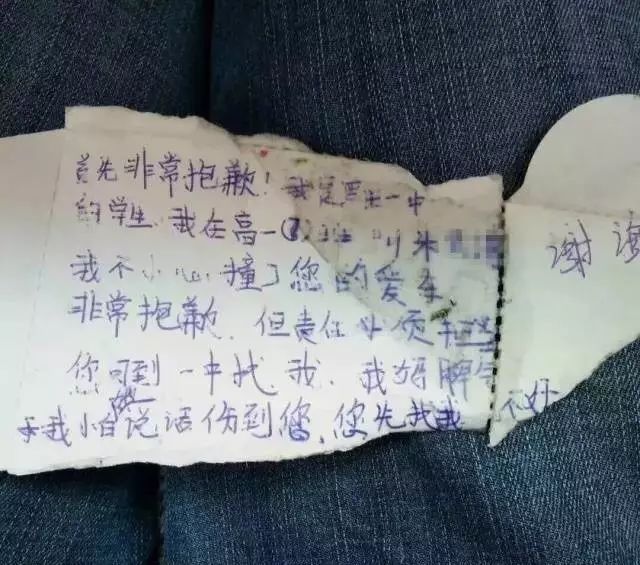 首先非常抱歉！我是罗庄一中
的学生，我在高一(3)班 叫朱
我不小心撞了您的爱车
非常抱歉，但责任必须承担
您可到一中找我，我妈脾气不好
我怕她说话伤到您，您先找我
谢谢